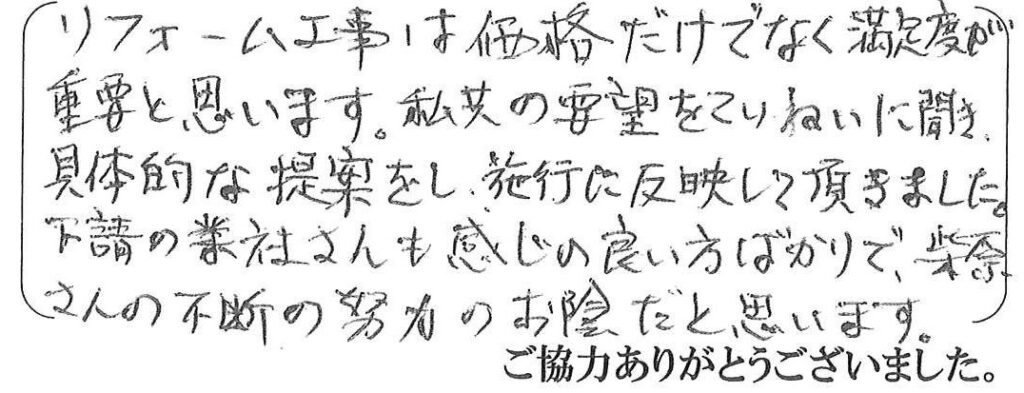 リフォーム工事は価格だけでなく満足度が
重要と思います。私共の要望をていねいに聞き、
具体的な提案をし、施行に反映して頂きました。
下請の業社さんも感じの良い方ばかりで、柴原
さんの不断の努力のお陰だと思います。
ご協力ありがとうございました。